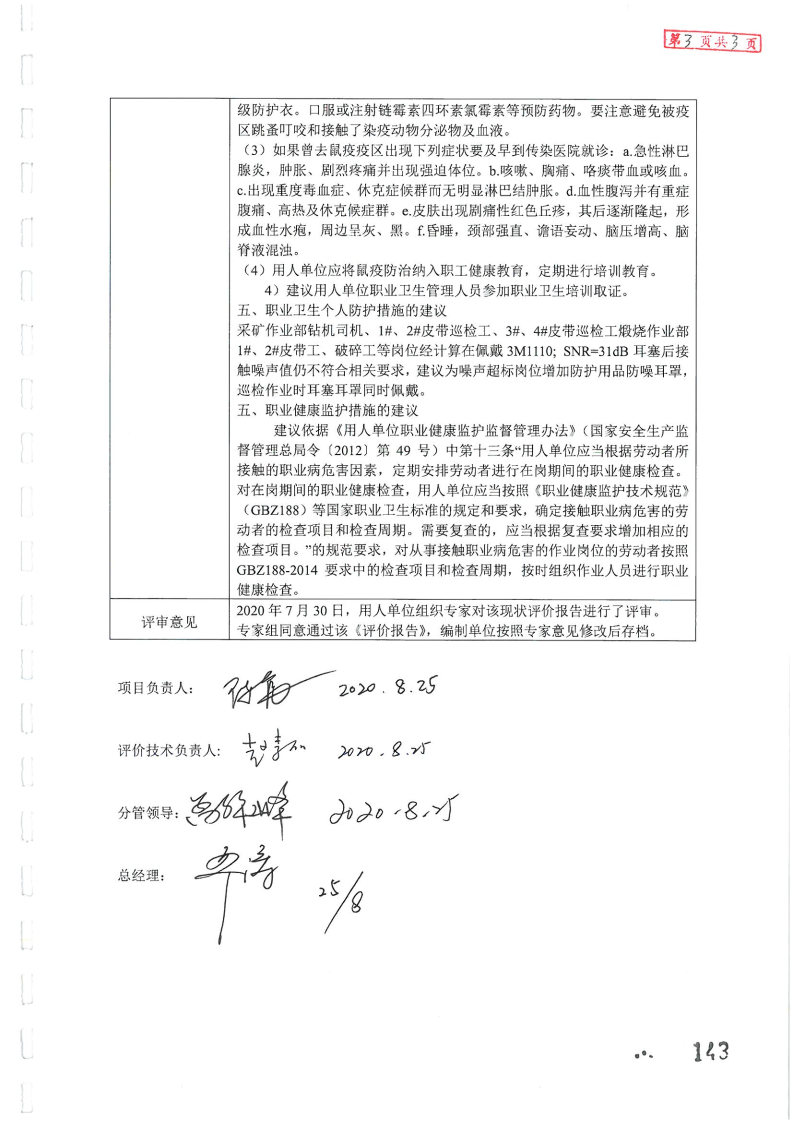 第3页共3页
级防护衣。口服或注射链霉素四环素氯霉素等预防药物。要注意避免被疫
区跳蚤叮咬和接触了染疫动物分泌物及血液。
（3）如果曾去鼠疫疫区出现下列症状要及早到传染医院就诊：a.急性淋巴
腺炎，肿胀、剧烈疼痛并出现强迫体位。b.咳嗽、胸痛、咯痰带血或咳血。
c.出现重度毒血症、休克症候群而无明显淋巴结肿胀。d.血性腹泻并有重症
腹痛、高热及休克候症群。e.皮肤出现剧痛性红色丘疹，其后逐渐隆起，形
成血性水疱，周边呈灰、黑。f.昏睡，颈部强直、谵语妄动、脑压增高、脑
脊液混浊。
（4）用人单位应将鼠疫防治纳入职工健康教育，定期进行培训教育。
4）建议用人单位职业卫生管理人员参加职业卫生培训取证。
五、职业卫生个人防护措施的建议
采矿作业部钻机司机、1#、2#皮带巡检工、3#、4#皮带巡检工煅烧作业部
1#、2#皮带工、破碎工等岗位经计算在佩戴 3M1110; SNR=31dB 耳塞后接
触噪声值仍不符合相关要求，建议为噪声超标岗位增加防护用品防噪耳罩，
巡检作业时耳塞耳罩同时佩戴。
五、职业健康监护措施的建议
建议依据《用人单位职业健康监护监督管理办法》（国家安全生产监
督管理总局令〔2012〕第 49 号）中第十三条“用人单位应当根据劳动者所
接触的职业病危害因素，定期安排劳动者进行在岗期间的职业健康检查。
对在岗期间的职业健康检查，用人单位应当按照《职业健康监护技术规范》
（GBZ188）等国家职业卫生标准的规定和要求，确定接触职业病危害的劳
动者的检查项目和检查周期。需要复查的，应当根据复查要求增加相应的
检查项目。”的规范要求，对从事接触职业病危害的作业岗位的劳动者按照
GBZ188-2014 要求中的检查项目和检查周期，按时组织作业人员进行职业
健康检查。
评审意见
2020 年 7 月 30 日，用人单位组织专家对该现状评价报告进行了评审。
专家组同意通过该《评价报告》，编制单位按照专家意见修改后存档。
项目负责人： 2020.8.25
评价技术负责人: 2020.8.25
分管领导： 2020.8.25
总经理： 25/8
143